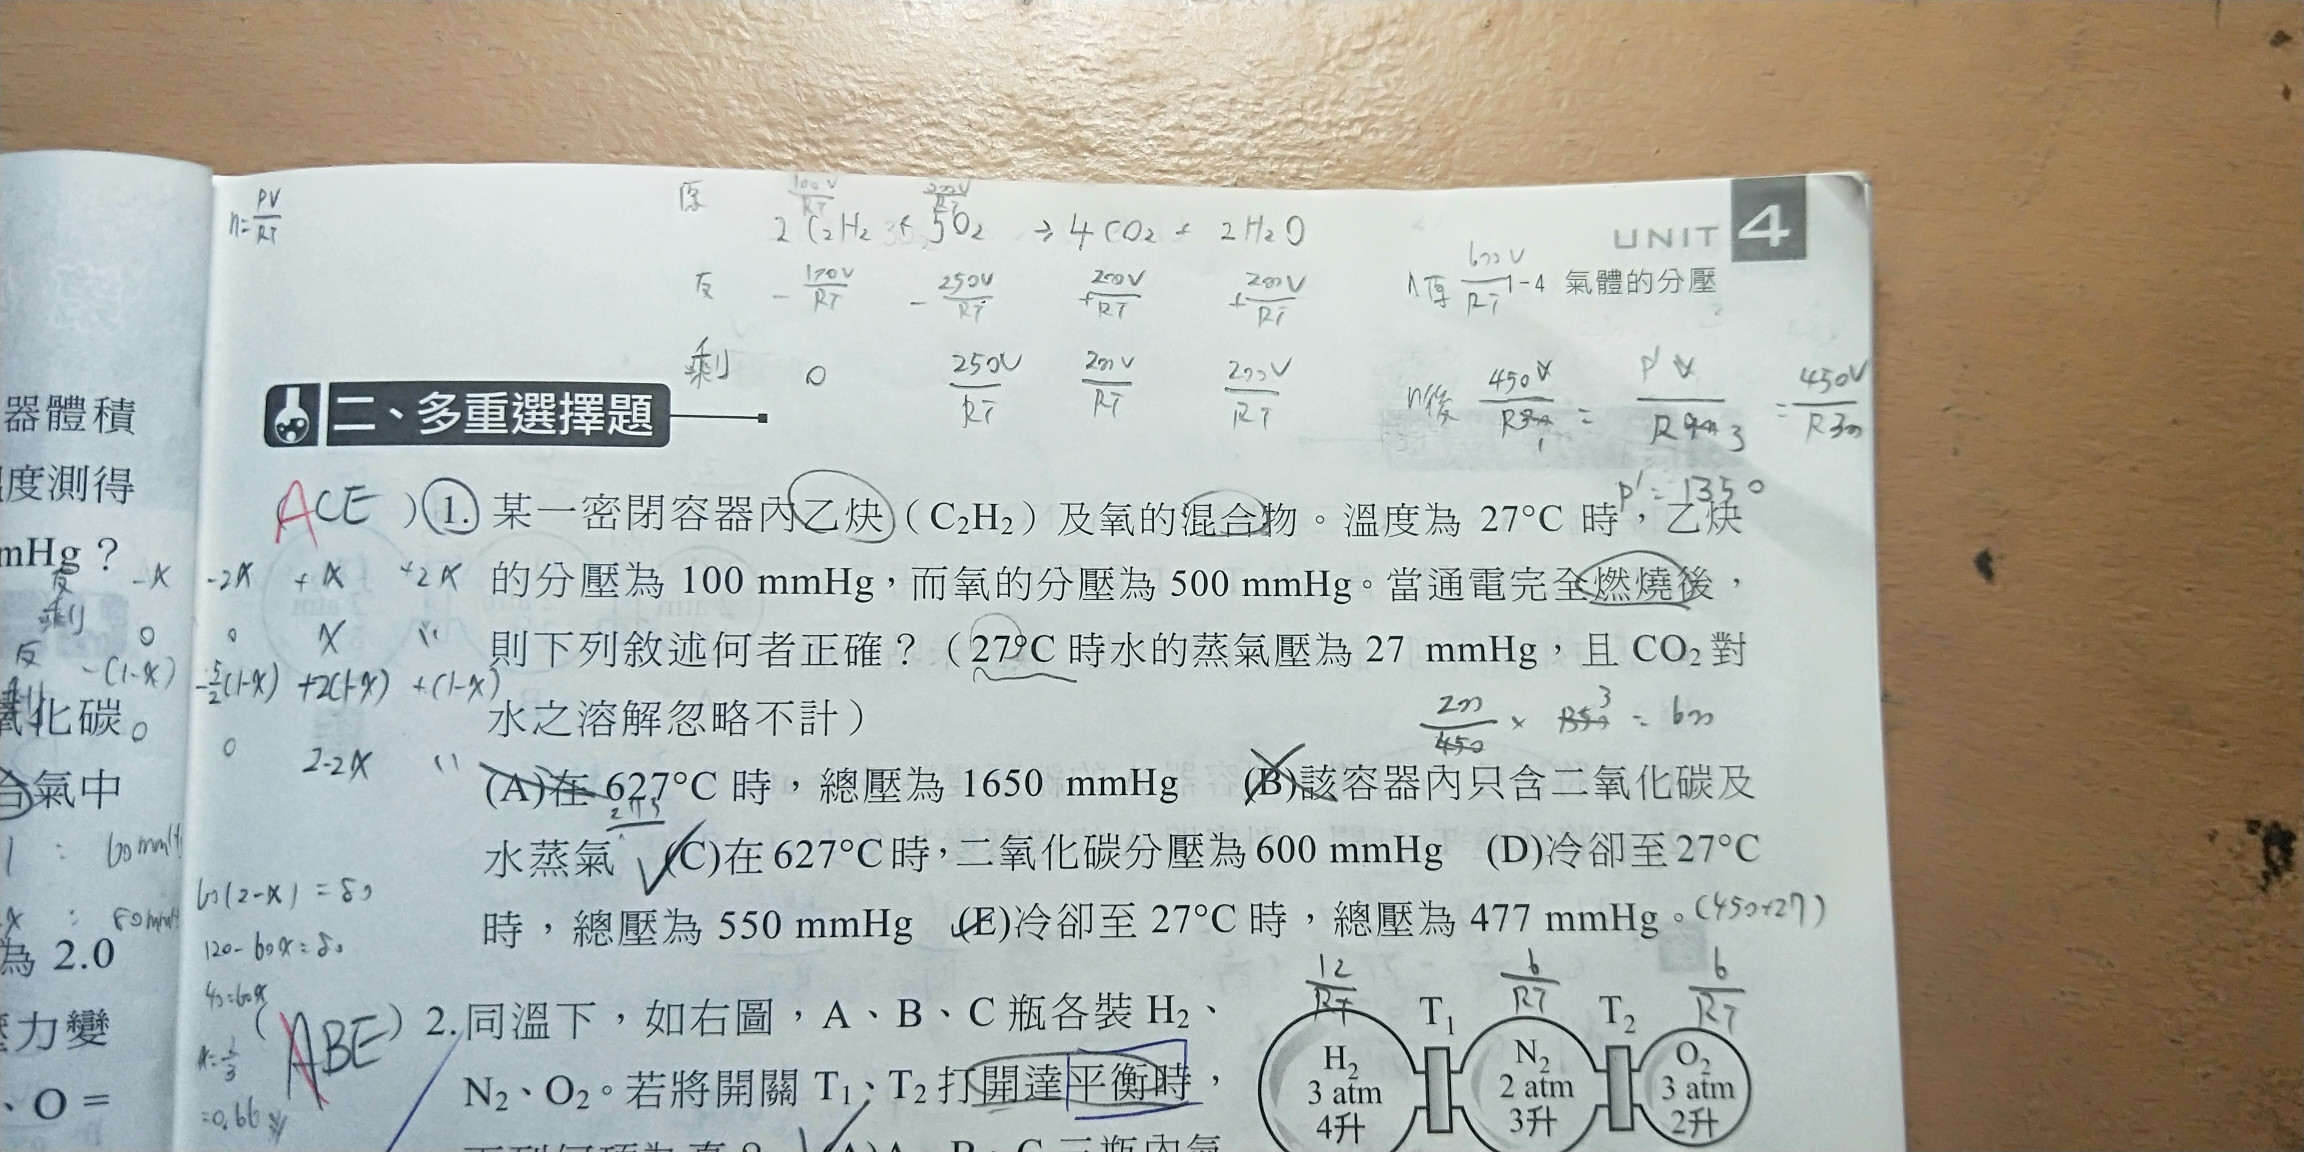 n=PV/RT
原 100V/RT 500V/RT
2C₂H₂ + 5O₂ → 4CO₂ + 2H₂O
UNIT 4
反 -100V/RT -250V/RT +200V/RT +200V/RT
n原 600V/RT
1-4 氣體的分壓
剩 0 250V/RT 200V/RT 200V/RT
n後 450V/R300 = P'V/R900 = 450V/R300
P'=1350
二、多重選擇題
器體積
度測得
mHg？
氧化碳
合氣中
為 2.0
壓力變
、O＝
反 -x -2x +x +2x
剩 0 0 x "
反 -(1-x) -5/2(1-x) +2(1-x) +(1-x)
剩 0 0 2-2x "
1 : 60mmHg
60(2-x) = 80
x : 80mmH
120-60x=80
40=60x
ACE ) 1. 某一密閉容器內乙炔（C₂H₂）及氧的混合物。溫度為 27°C 時，乙炔
的分壓為 100 mmHg，而氧的分壓為 500 mmHg。當通電完全燃燒後，
則下列敘述何者正確？（27°C 時水的蒸氣壓為 27 mmHg，且 CO₂ 對
水之溶解忽略不計）
200/450 × 1350 3 = 600
(A)在 627°C 時，總壓為 1650 mmHg (B)該容器內只含二氧化碳及
水蒸氣 (C)在 627°C 時，二氧化碳分壓為 600 mmHg (D)冷卻至 27°C
時，總壓為 550 mmHg (E)冷卻至 27°C 時，總壓為 477 mmHg。(450+27)
12/RT 6/RT 6/RT
( ABE ) 2. 同溫下，如右圖，A、B、C 瓶各裝 H₂、
N₂、O₂。若將開關 T₁、T₂ 打開達平衡時，
T₁ T₂
H₂
3 atm
4升
N₂
2 atm
3升
O₂
3 atm
2升